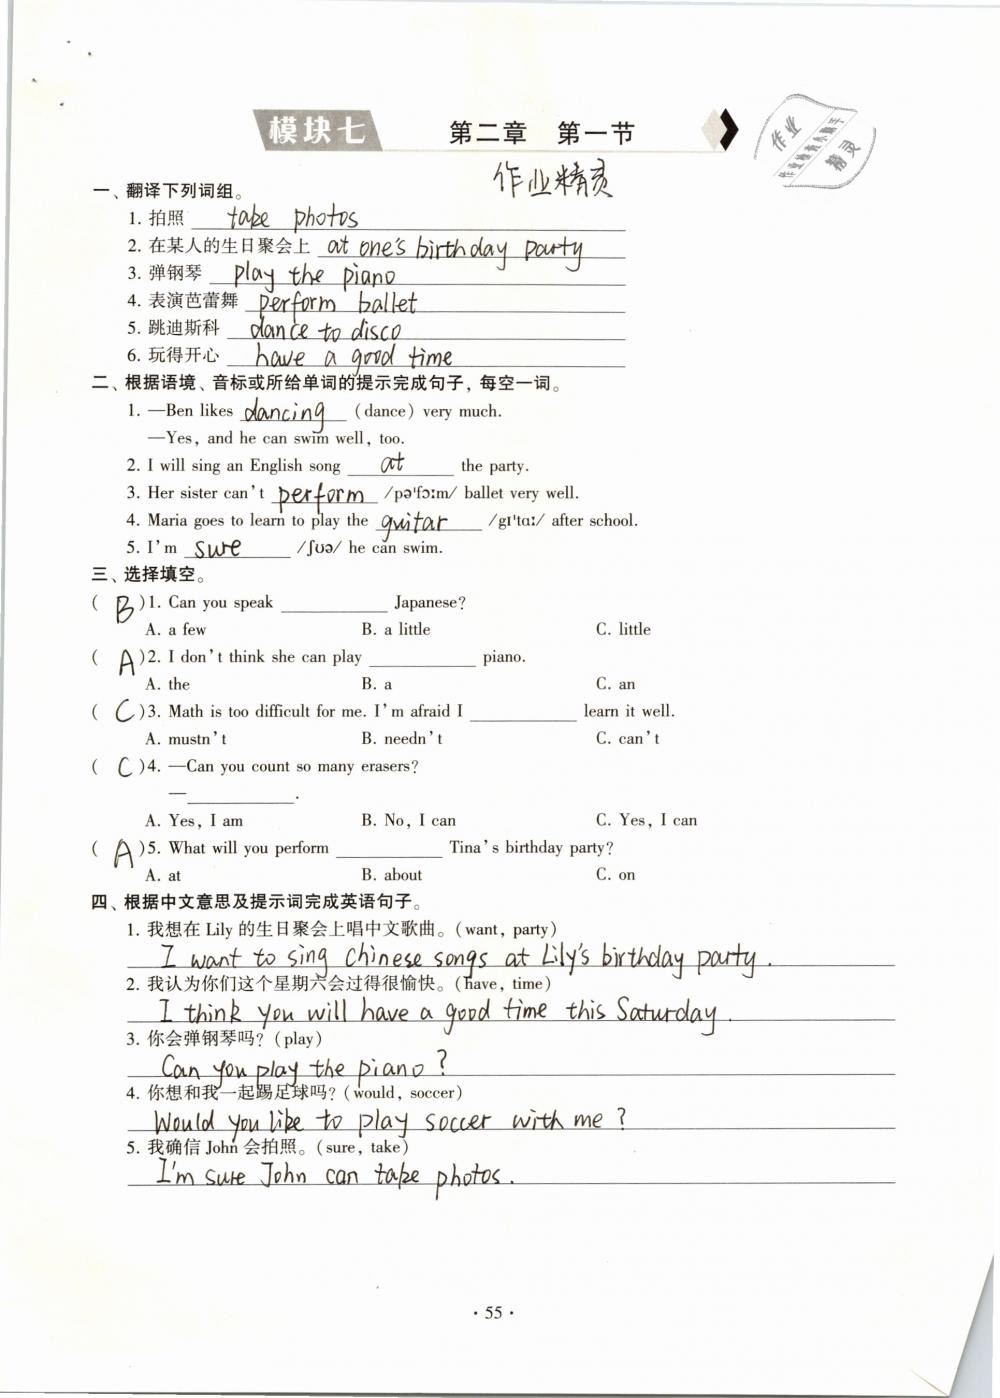 模块七 第二章 第一节
作业
作业检查小助手
精灵
作业精灵
一、翻译下列词组。
1. 拍照 take photos
2. 在某人的生日聚会上 at one's birthday party
3. 弹钢琴 play the piano
4. 表演芭蕾舞 perform ballet
5. 跳迪斯科 dance to disco
6. 玩得开心 have a good time
二、根据语境、音标或所给单词的提示完成句子，每空一词。
1. —Ben likes dancing (dance) very much.
—Yes, and he can swim well, too.
2. I will sing an English song at the party.
3. Her sister can't perform /pə'fɔːm/ ballet very well.
4. Maria goes to learn to play the guitar /gɪ'tɑː/ after school.
5. I'm sure /ʃʊə/ he can swim.
三、选择填空。
( B )1. Can you speak ________ Japanese?
A. a few B. a little C. little
( A )2. I don't think she can play ________ piano.
A. the B. a C. an
( C )3. Math is too difficult for me. I'm afraid I ________ learn it well.
A. mustn't B. needn't C. can't
( C )4. —Can you count so many erasers?
—________.
A. Yes, I am B. No, I can C. Yes, I can
( A )5. What will you perform ________ Tina's birthday party?
A. at B. about C. on
四、根据中文意思及提示词完成英语句子。
1. 我想在 Lily 的生日聚会上唱中文歌曲。(want, party)
I want to sing Chinese songs at Lily's birthday party.
2. 我认为你们这个星期六会过得很愉快。(have, time)
I think you will have a good time this Saturday.
3. 你会弹钢琴吗? (play)
Can you play the piano?
4. 你想和我一起踢足球吗? (would, soccer)
Would you like to play soccer with me?
5. 我确信 John 会拍照。(sure, take)
I'm sure John can take photos.
· 55 ·